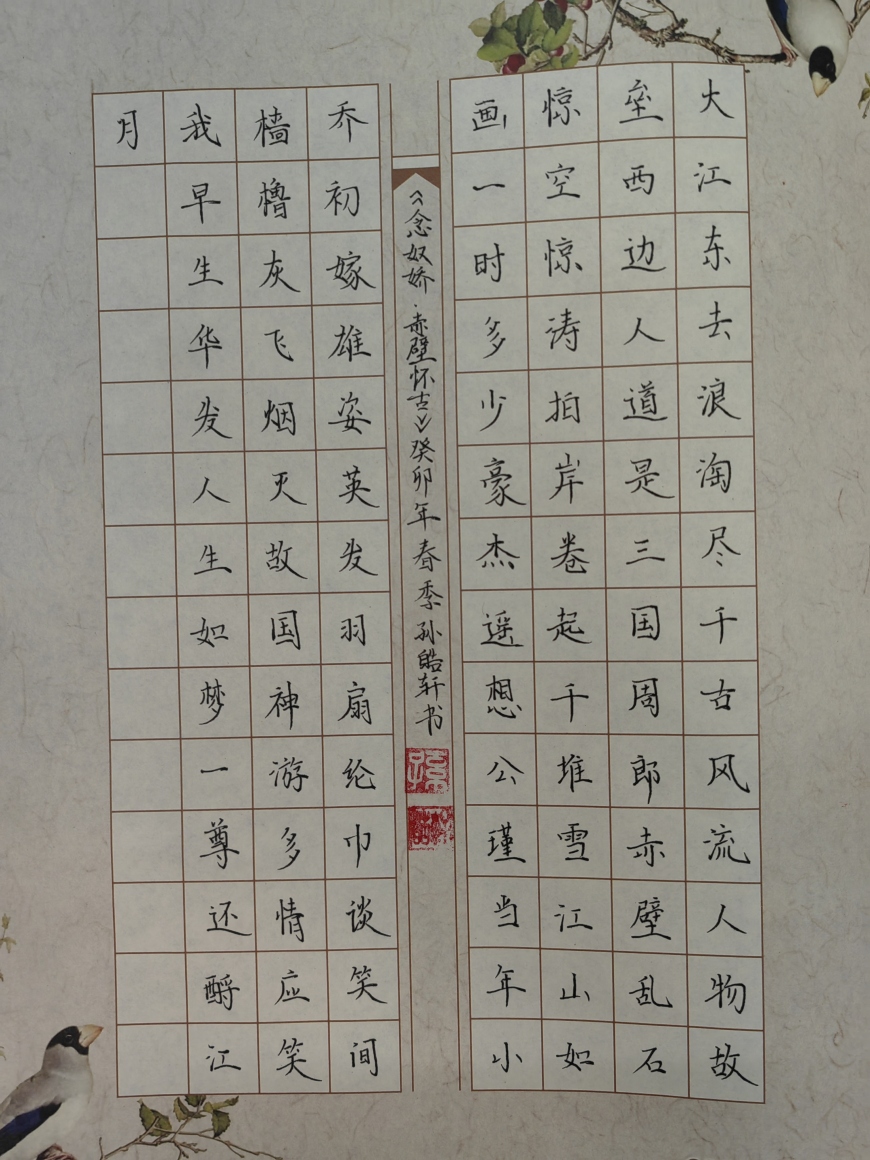 大江东去浪淘尽千古风流人物故
垒西边人道是三国周郎赤壁乱石
惊空惊涛拍岸卷起千堆雪江山如
画一时多少豪杰遥想公瑾当年小
《念奴娇·赤壁怀古》癸卯年春季孙皓轩书
乔初嫁雄姿英发羽扇纶巾谈笑间
樯橹灰飞烟灭故国神游多情应笑
我早生华发人生如梦一尊还酹江
月